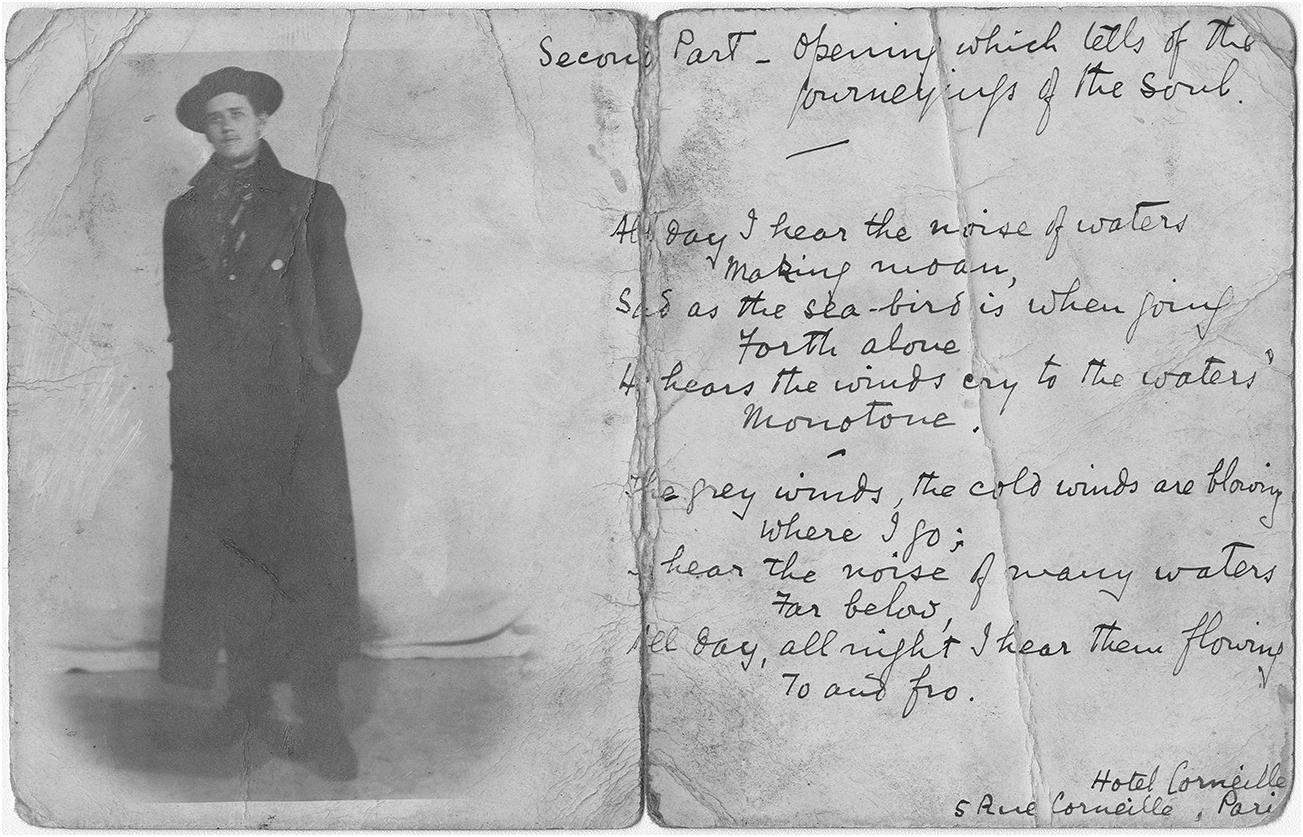 Second Part – Opening which tells of the
journeyings of the soul.
All day I hear the noise of waters
Making moan,
Sad as the sea-bird is when going
Forth alone
He hears the winds cry to the waters'
Monotone.
The grey winds, the cold winds are blowing
where I go;
I hear the noise of many waters
Far below,
All day, all night I hear them flowing
To and fro.
Hotel Corneille
5 Rue Corneille, Paris